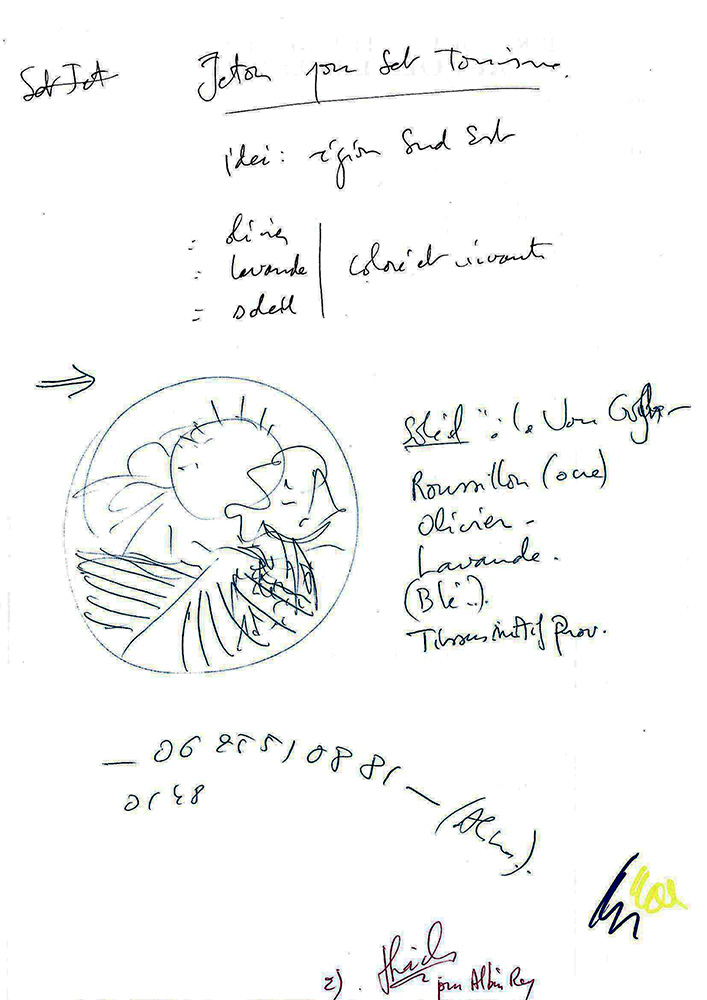 Set Jet
Jeton pour Set Tourisme.
idée : région Sud Est
= olivier
= lavande
= soleil
coloré et vivante
Soleil " : le Van Gogh -
Roussillon (ocre)
Olivier -
Lavande .
(Blé..).
Tissus motif prov.
— 06 51 08 81 —
0148
2) .
pour Albin Rey